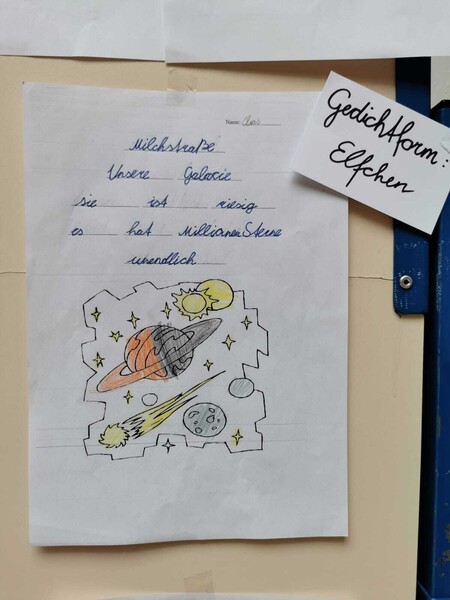 Name:
Milchstraße
Unsere Galaxie
sie ist riesig
es hat Millionen Sterne
unendlich
Gedichtform:
Elfchen